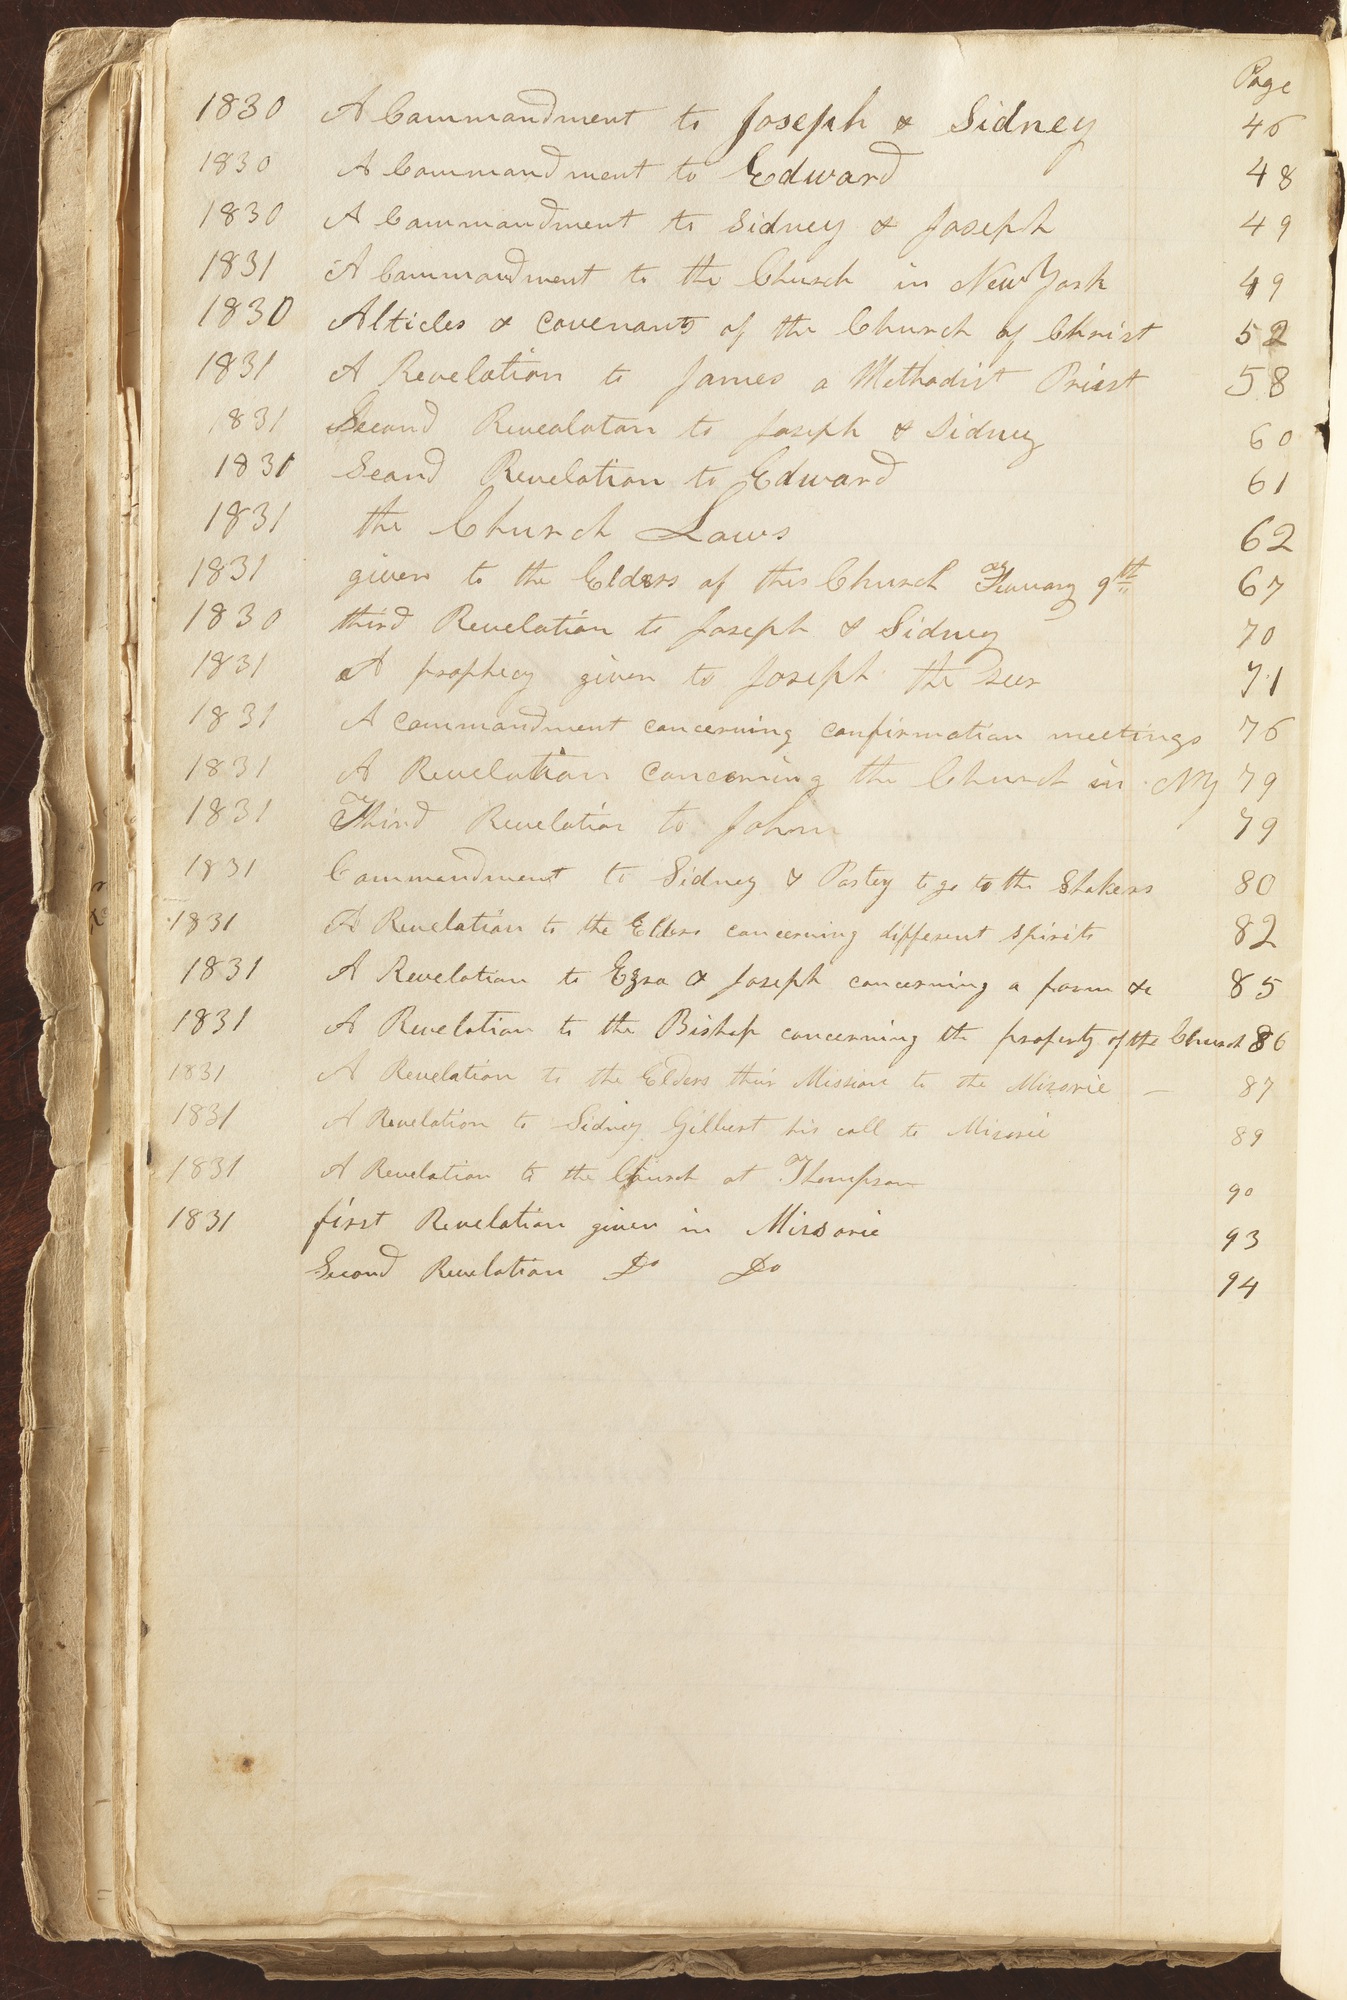 Page
1830 A Commandment to Joseph & Sidney 46
1830 A Commandment to Edward 48
1830 A Commandment to Sidney & Joseph 49
1831 A Commandment to the Church in New York 49
1830 Alticles & covenants of the Church of Christ 52
1831 A Revelation to James a Methodist Priest 58
1831 Second Revealaton to Joseph & Sidney 60
1831 Seand Revelation to Edward 61
1831 the Church Laws 62
1831 given to the Elders of this Church 9th 67
1830 third Revelation to Joseph & Sidney 70
1831 A prophecy given to Joseph the Seer 71
1831 A commandment concerning confirmation meetings 76
1831 A Revelation concerning the Church in NY 79
1831 Third Revelation to Johon 79
1831 Commandment to Sidney & Parley to go to the Shakers 80
1831 A Revelation to the Elders concerning different spirits 82
1831 A Revelation to Ezra & Joseph concerning a farm &c 85
1831 A Revelation to the Bishop concerning the property of the Church 86
1831 A Revelation to the Elders their Mission to the Misorie — 87
1831 A Revelation to Sidney Gilbert his call to Misorie 89
1831 A Revelation to the Church at Thompson 90
1831 first Revelation given in Missorie 93
Second Revelation Do Do 94